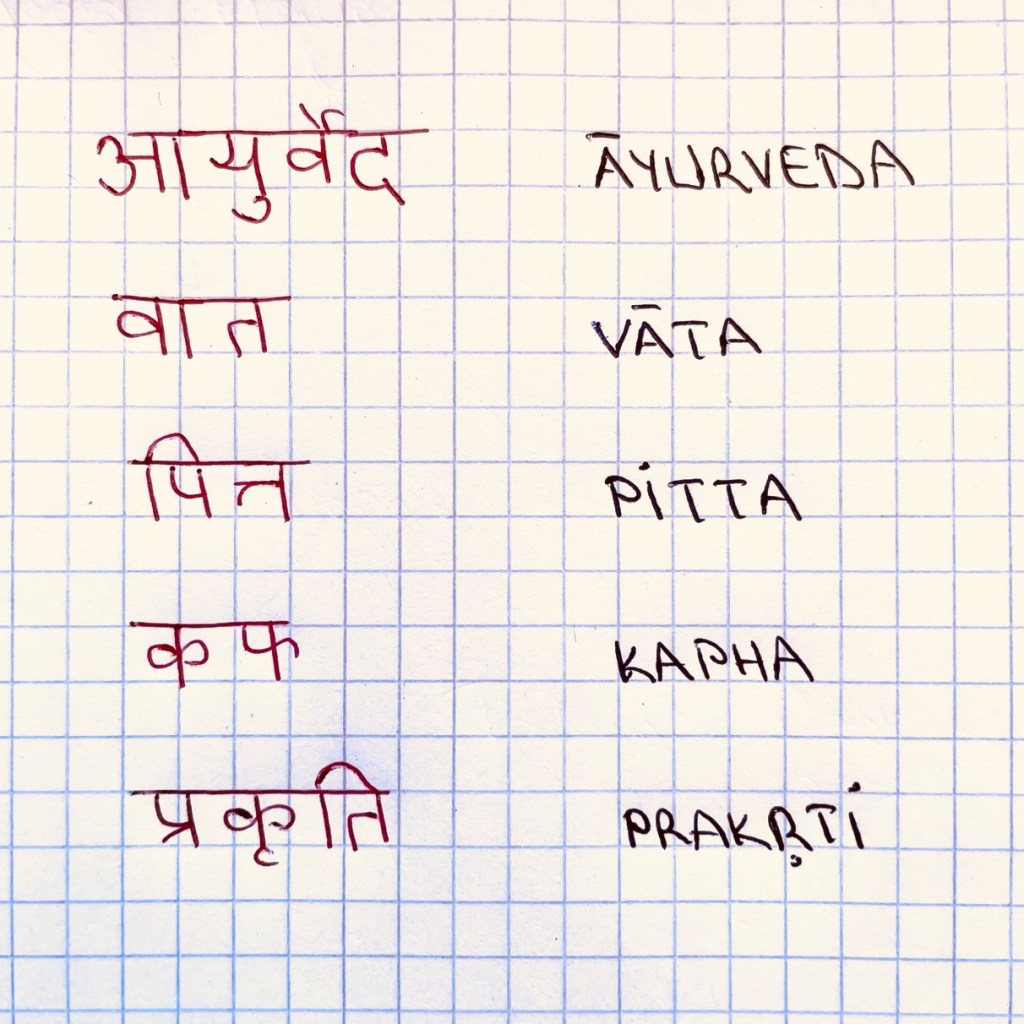 आयुर्वेद ĀYURVEDA
वात VĀTA
पित्त PİTTA
कफ KAPHA
प्रकृति PRAKṚTİ